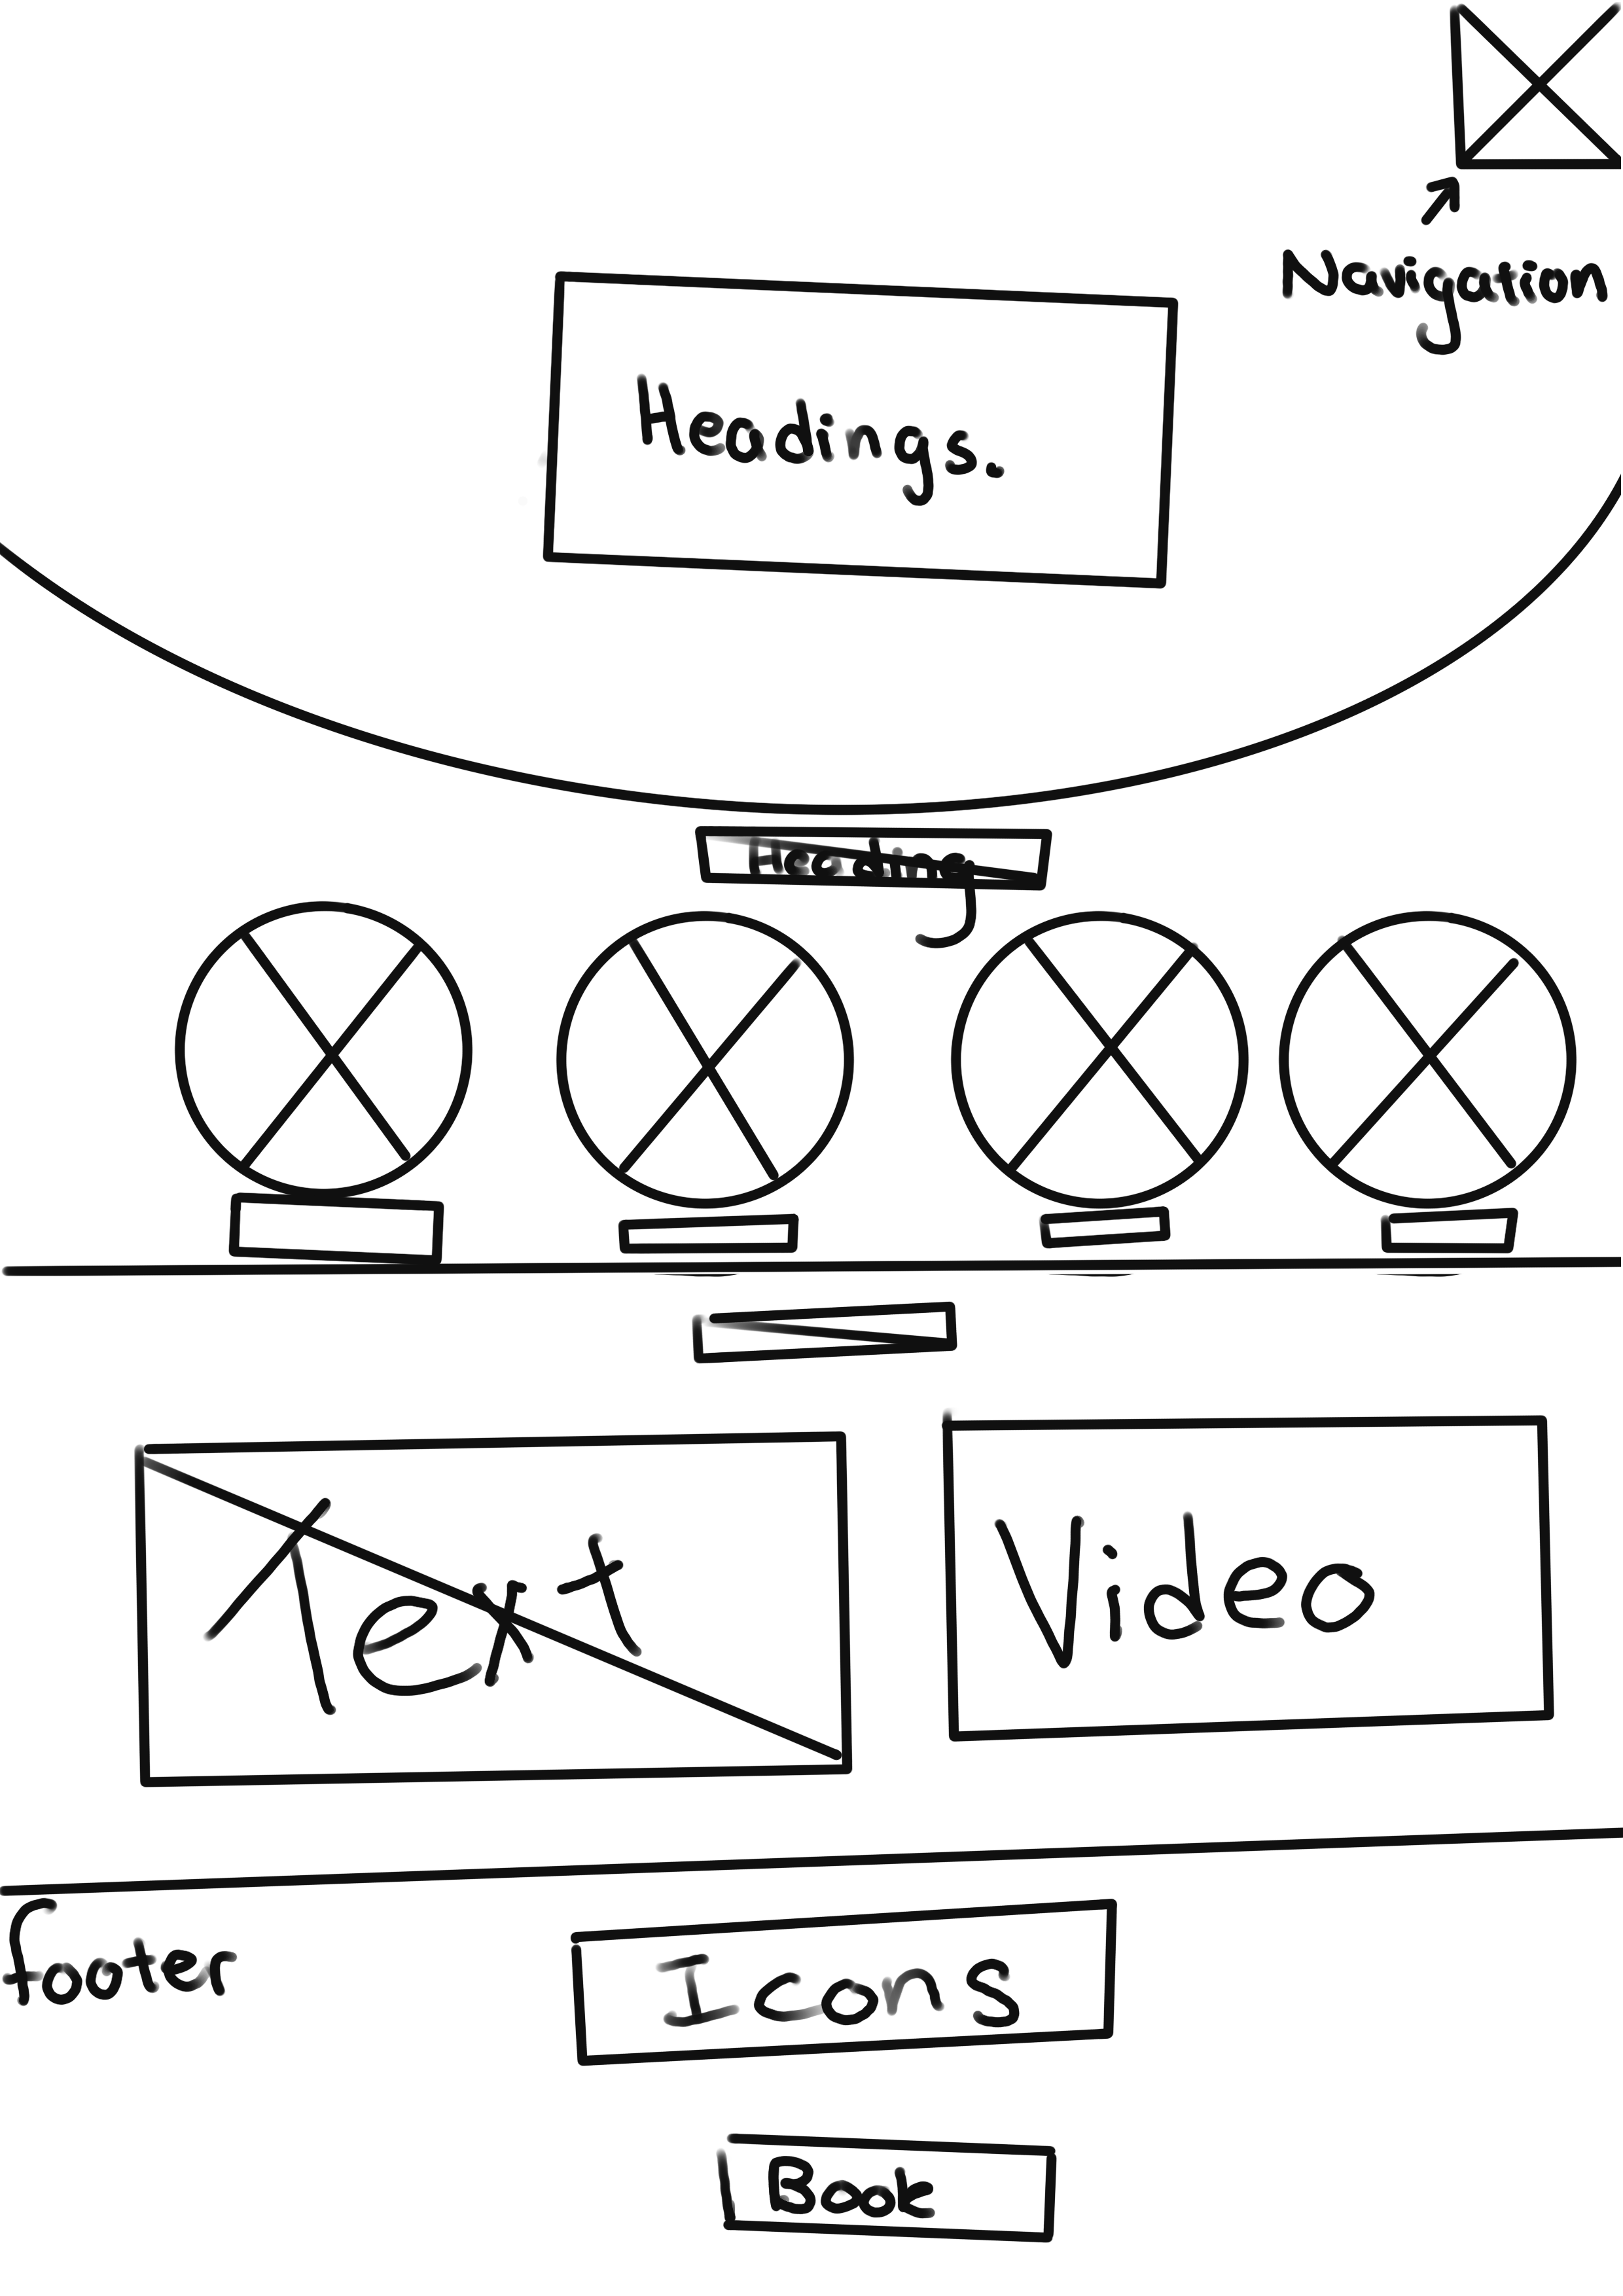 Navigation
Headings.
Heading
Text
Video
footer
Icons
Book